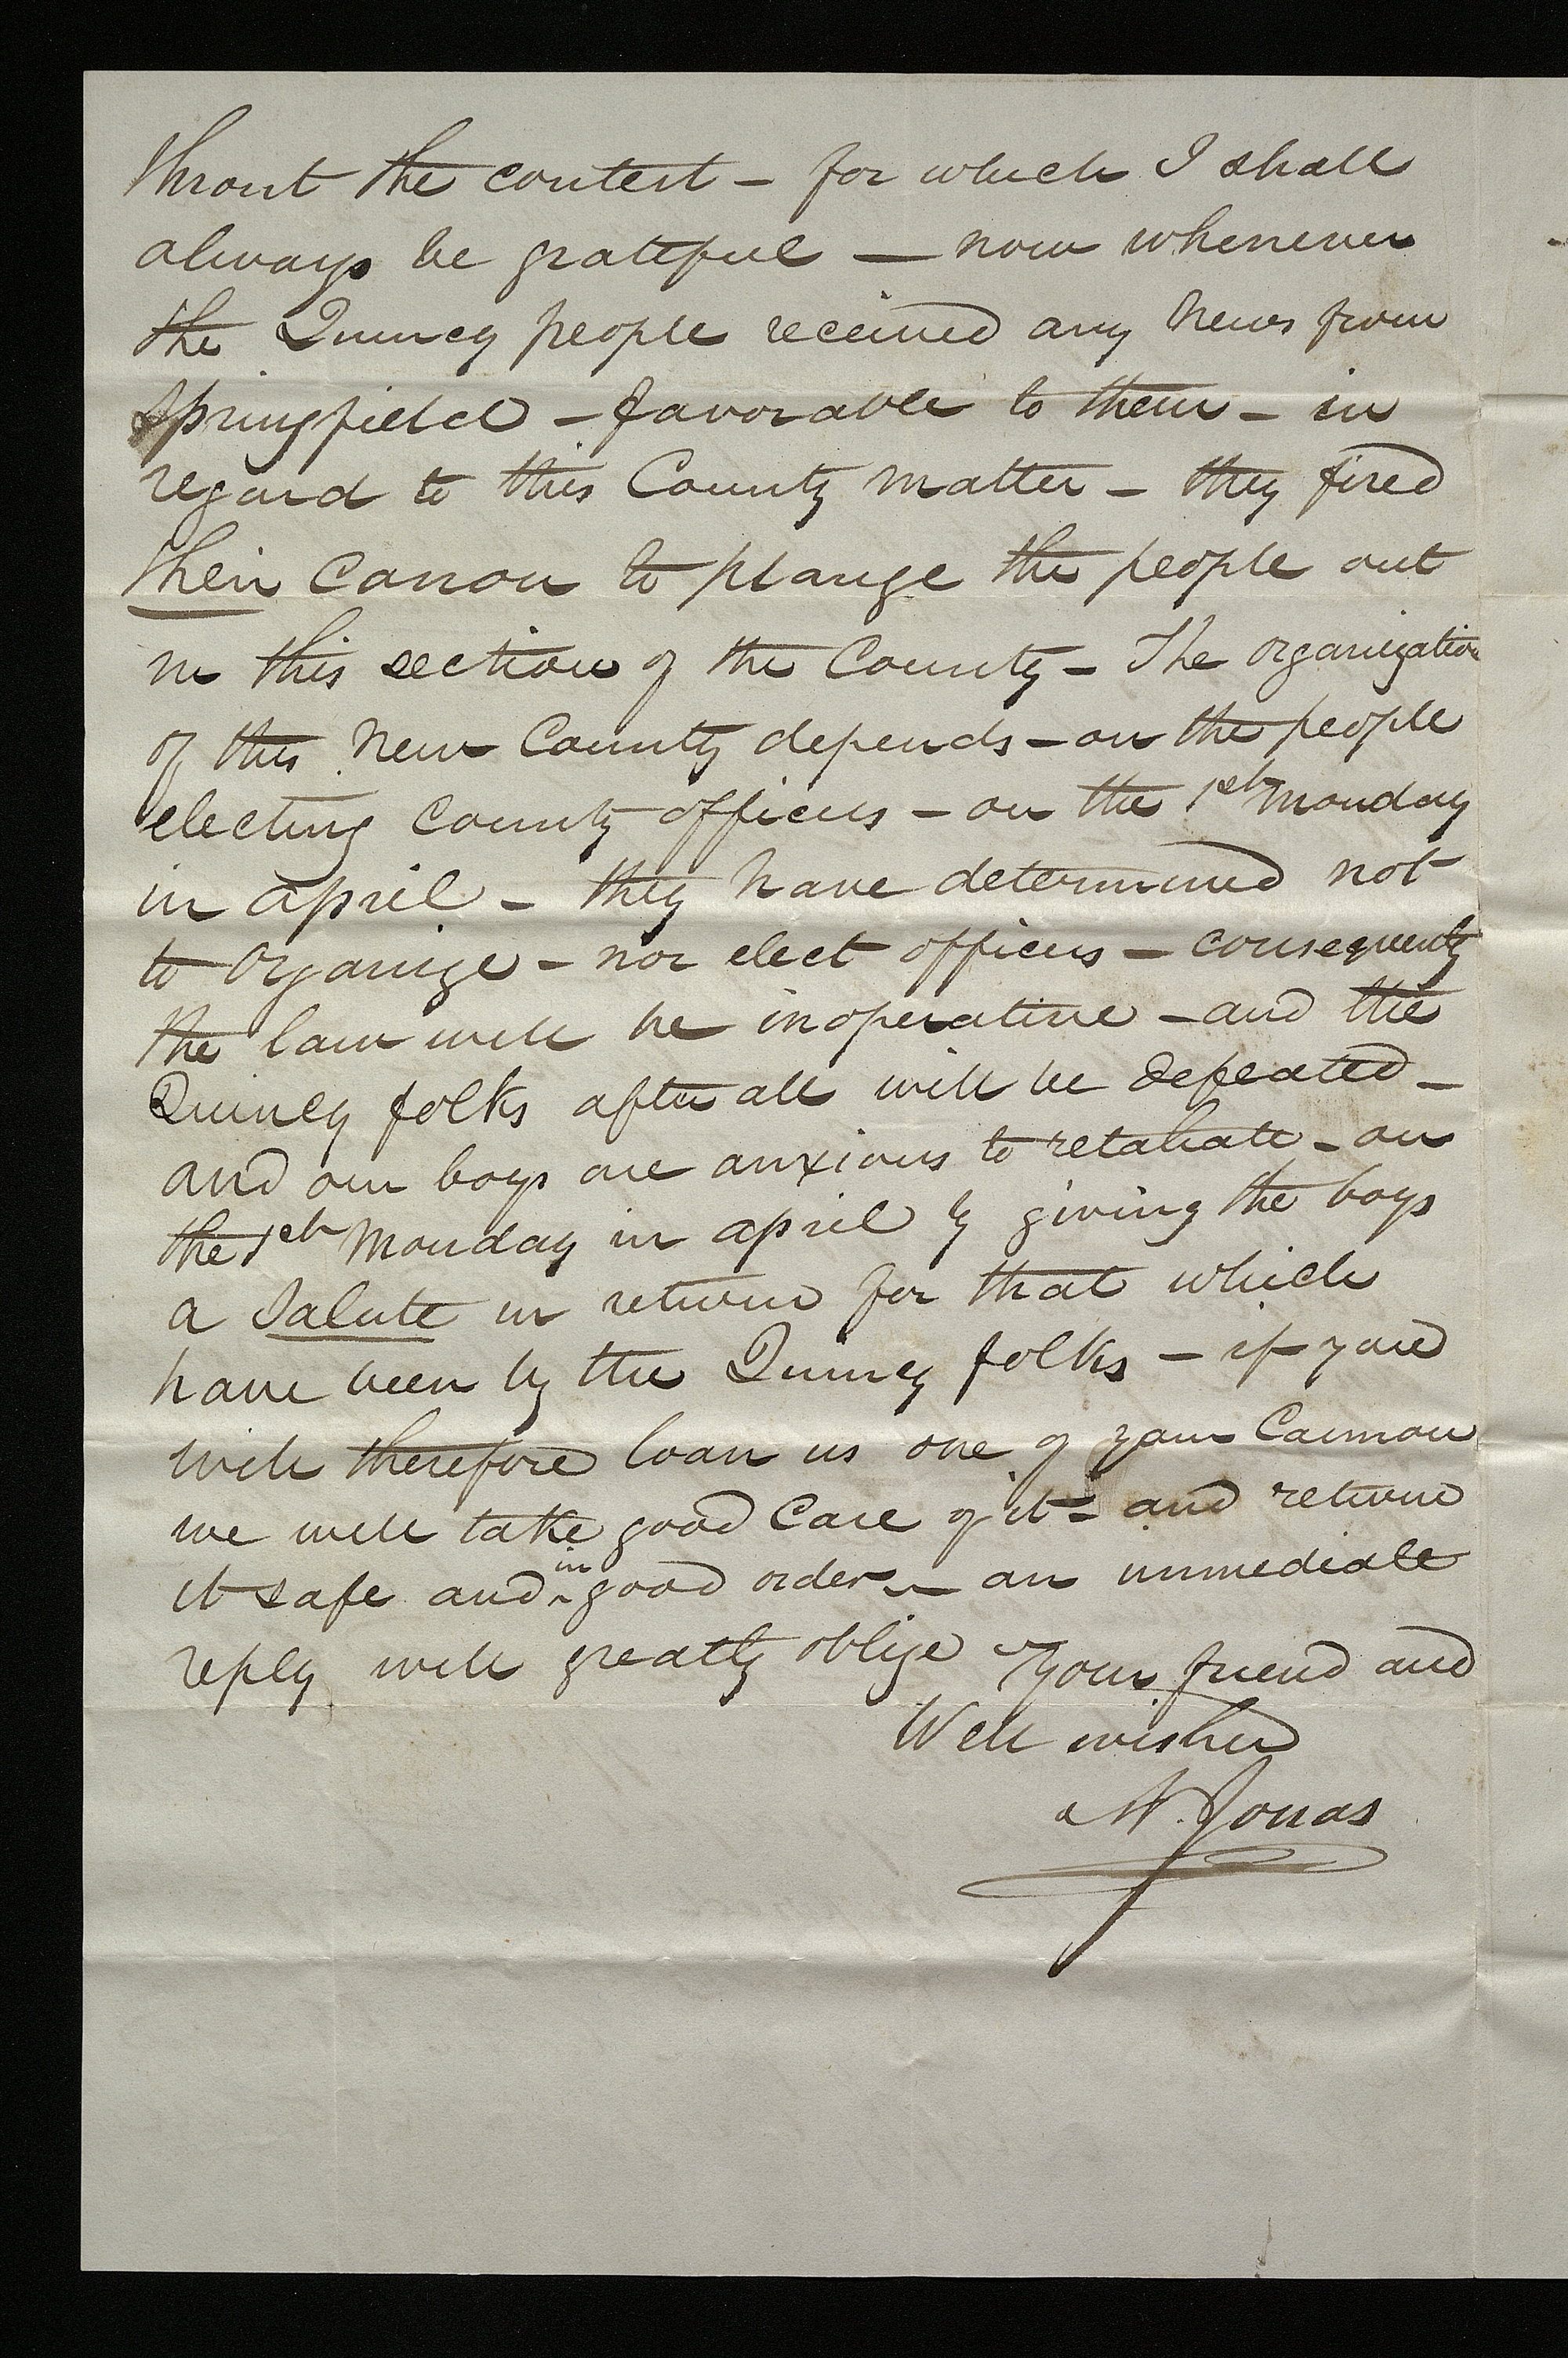 throut the contest – for which I shall
always be grateful — now whenever
the Quincy people received any news from
Springfield – favorable to them – in
regard to this County matter – they fired
their canon to plauge the people out
in this section of the County – The organization
of this new County depends – on the people
electing County officers – on the 1st Monday
in april – they have determined not
to organize – nor elect officers – consequently
the law will be inoperative – and the
Quincy folks after all will be defeated –
and our boys are anxious to retaliate – on
the 1st Monday in april by giving the boys
a salute in return for that which
have been by the Quincy folks – if you
will therefore loan us one of your Cannon
we will take good care of it – and return
it safe and in good order – an immediate
reply will greatly oblige Your friend and
Well wisher
A. Jonas